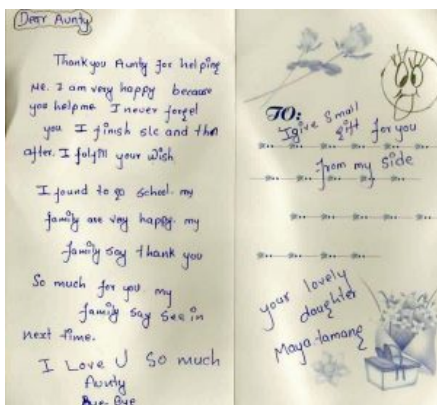 Dear Aunty
Thankyou Aunty for helping
me. I am very happy because
you helpme I never forgel
you I finish slc and then
after. I folfill your wish
I found to go school. my
family are very happy. my
family say thank you
So much for you. my
family say see in
next time.
I Love U So much
Aunty
Bye-Bye
TO:
I give Small
gift for you
from my side
your lovely
daughter
Maya-tamang